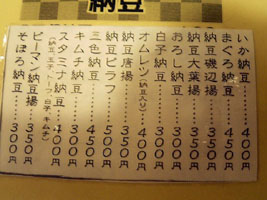 納豆
いか納豆…400円
まぐろ納豆…450円
納豆磯辺揚…350円
納豆大葉揚…350円
おろし納豆…300円
白子納豆…
オムレツ(納豆入り)400円
納豆唐揚…350円
納豆ピラフ…500円
三色納豆…450円
キムチ納豆…350円
スタミナ納豆…400円
(納豆 玉子 トーフ 白子 キムチ)
ピーマン納豆揚…350円
そぼろ納豆…300円